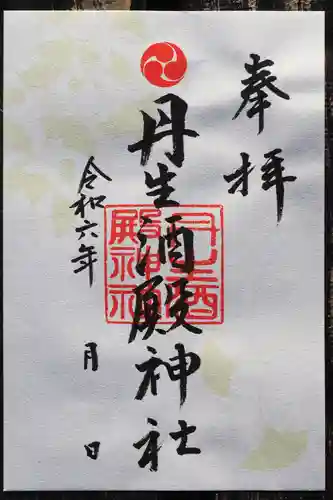 奉拝
丹生酒殿神社
丹生酒殿神社
令和六年 月 日